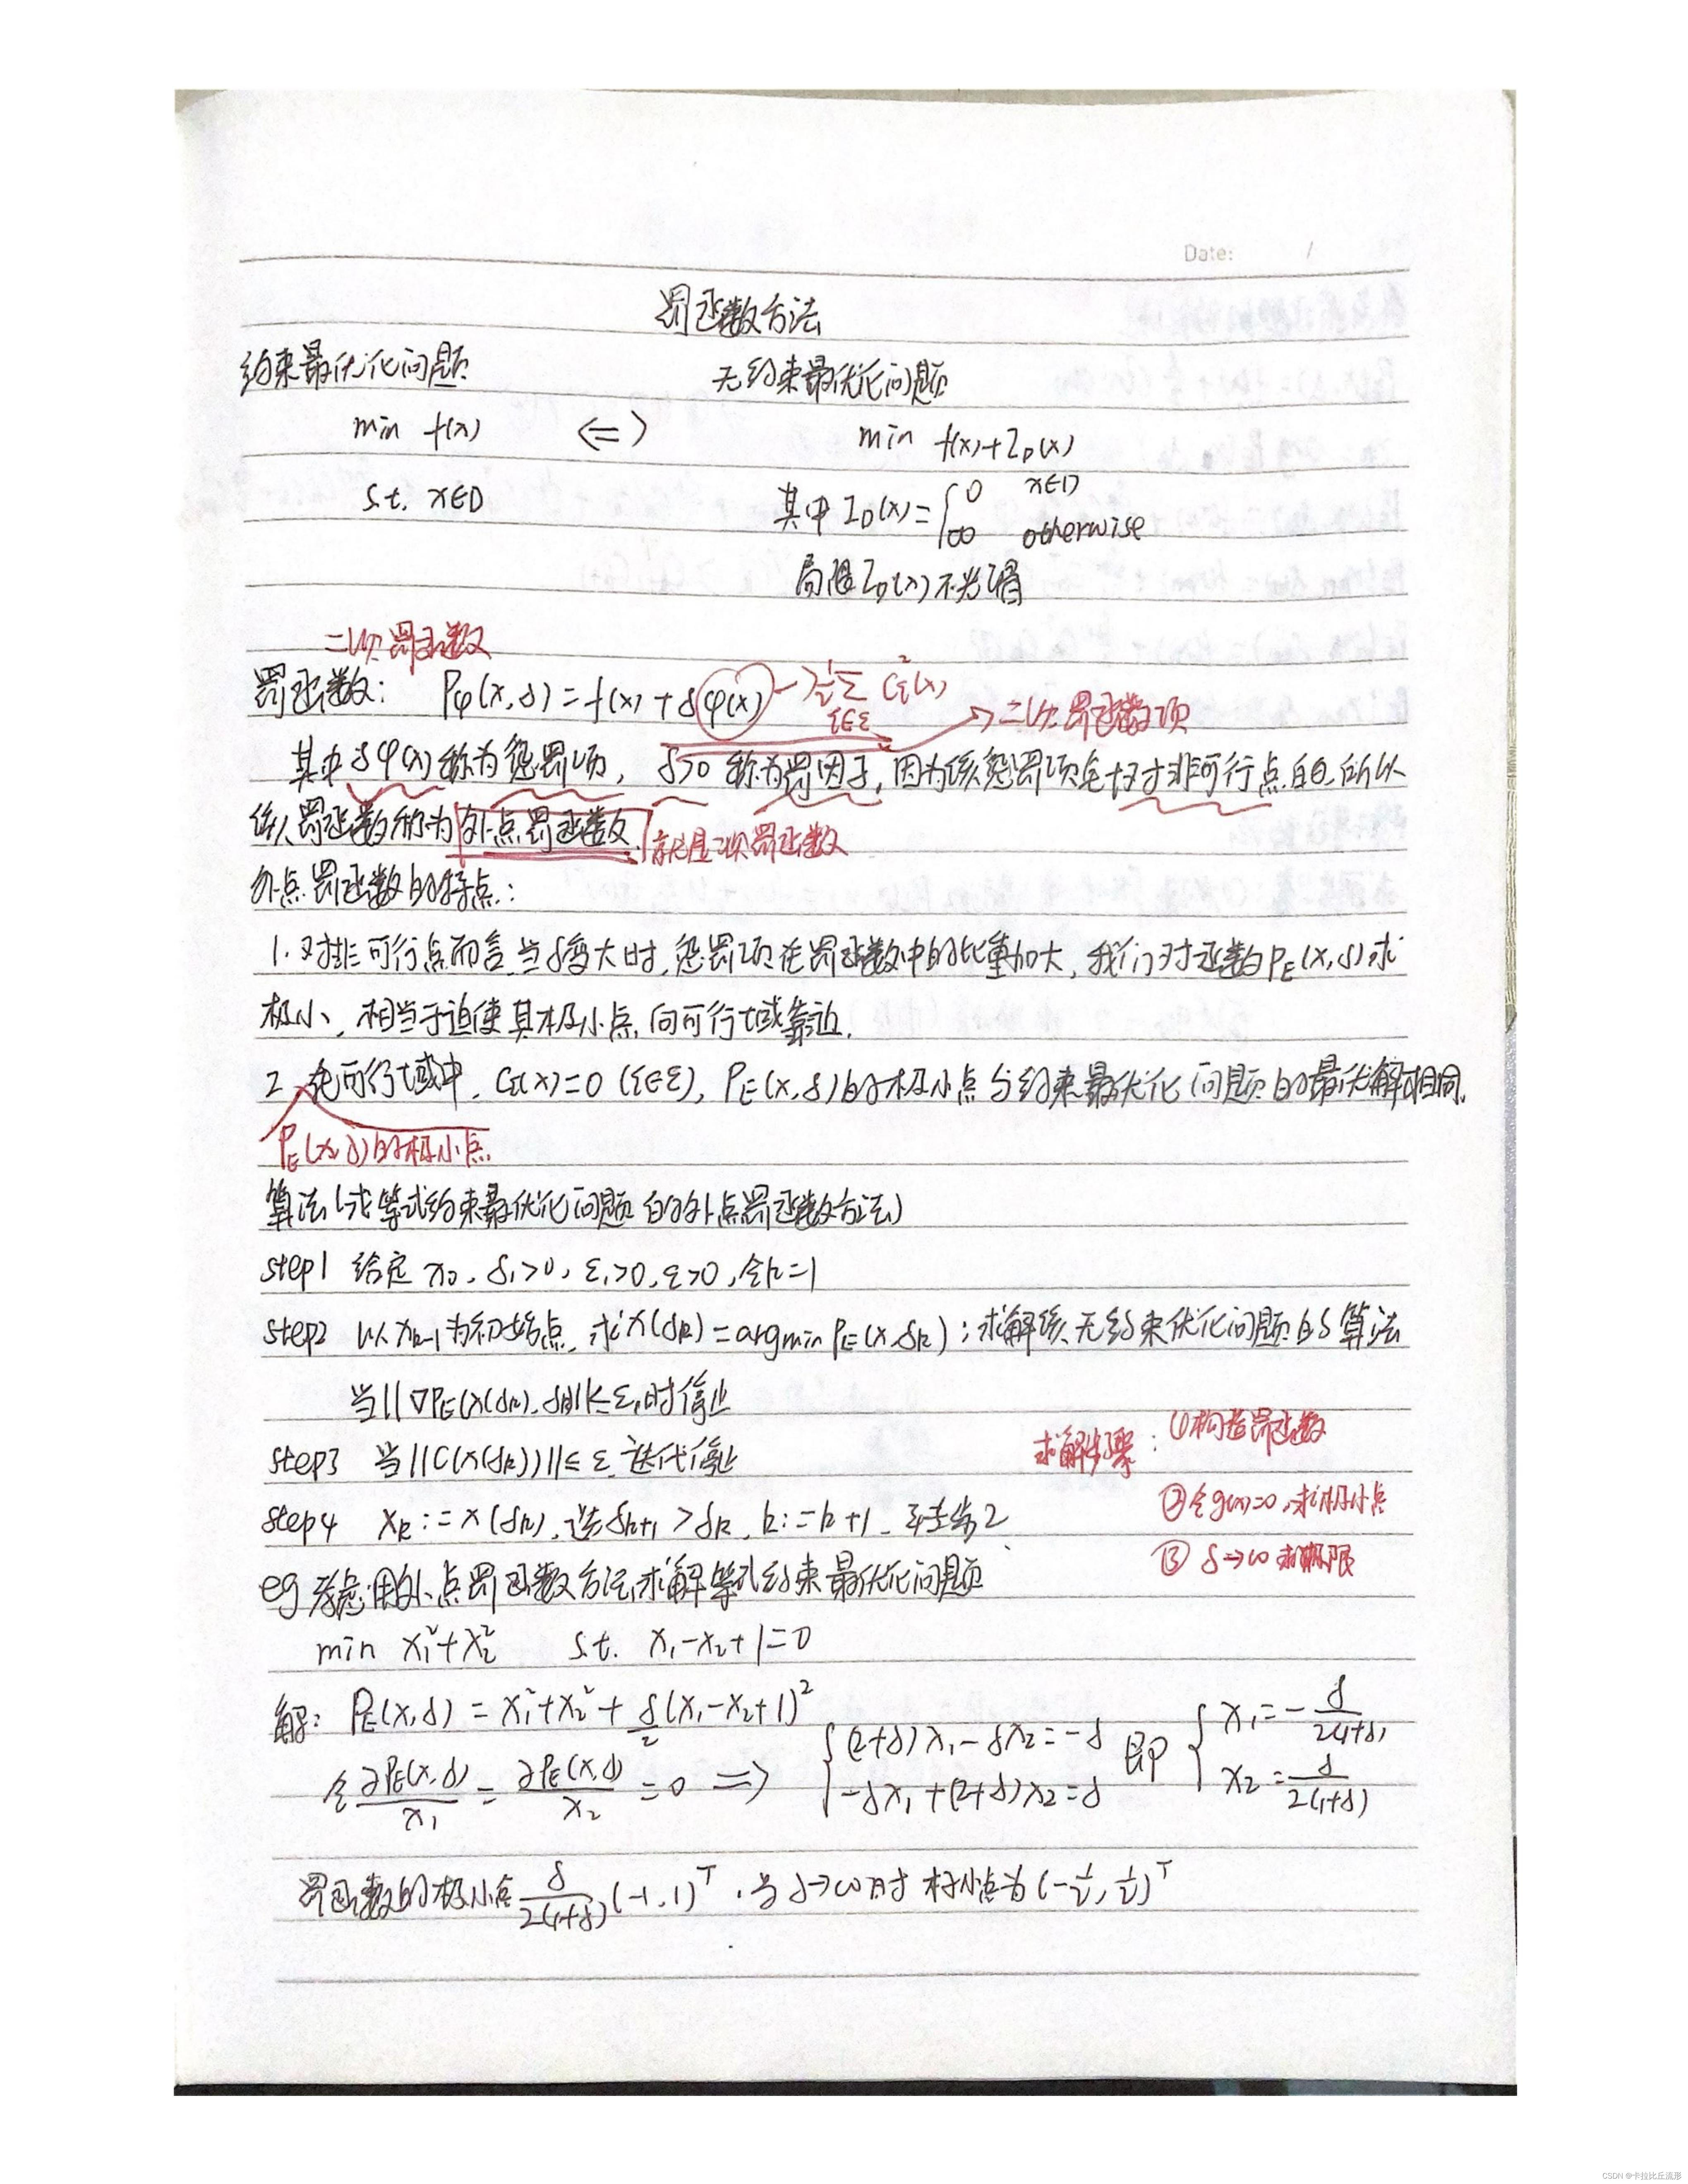 Date: /
罚函数方法
约束最优化问题 无约束最优化问题
min f(x) <=> min f(x)+I_D(x)
s.t. x∈D 其中I_D(x)={0 x∈D
∞ otherwise
局限I_D(x)不光滑
二次罚函数
罚函数: Pφ(x,δ)=f(x)+δφ(x) → 1/2 Σ_{i∈ε} C_i²(x)
→二次罚函数项
其中δφ(x)称为惩罚项, δ>0 称为罚因子, 因为该惩罚项是对非可行点的, 所以
该罚函数称为外点罚函数. 就是二次罚函数
外点罚函数的特点:
1. 对非可行点而言, 当δ变大时, 惩罚项在罚函数中的比重加大, 我们对函数P_E(x,δ)求
极小, 相当于迫使其极小点向可行域靠近.
2. 在可行域中, C_i(x)=0 (i∈ε), P_E(x,δ)的极小点与约束最优化问题的最优解相同.
P_E(x,δ)的极小点
算法(求等式约束最优化问题的外点罚函数方法)
step1 给定 x₀, δ₁>0, ε₁>0, ε>0, 令k=1
step2 以x_{k-1}为初始点, 求x(δ_k)=argmin P_E(x,δ_k); 求解该无约束优化问题的算法
当||∇P_E(x(δ_k),δ_k)||≤ε₁时停止
求解步骤: ①构造罚函数
step3 当||C(x(δ_k))||≤ε 迭代停止
②令g(x)=0, 求极小点
step4 x_k:=x(δ_k), 选δ_{k+1}>δ_k, k:=k+1, 转步2
③ δ→∞ 求极限
eg 考虑用外点罚函数方法求解等式约束最优化问题
min x₁²+x₂² s.t. x₁-x₂+1=0
解: P_E(x,δ)=x₁²+x₂²+δ/2(x₁-x₂+1)²
令 ∂P_E(x,δ)/x₁ = ∂P_E(x,δ)/x₂ =0 => {(2+δ)x₁-δx₂=-δ 即 {x₁=-δ/2(1+δ)
-δx₁+(2+δ)x₂=δ x₂=δ/2(1+δ)
罚函数的极小点 δ/2(1+δ) (-1,1)ᵀ, 当δ→∞时 极小点为(-1/2,1/2)ᵀ
CSDN @卡拉比丘流形